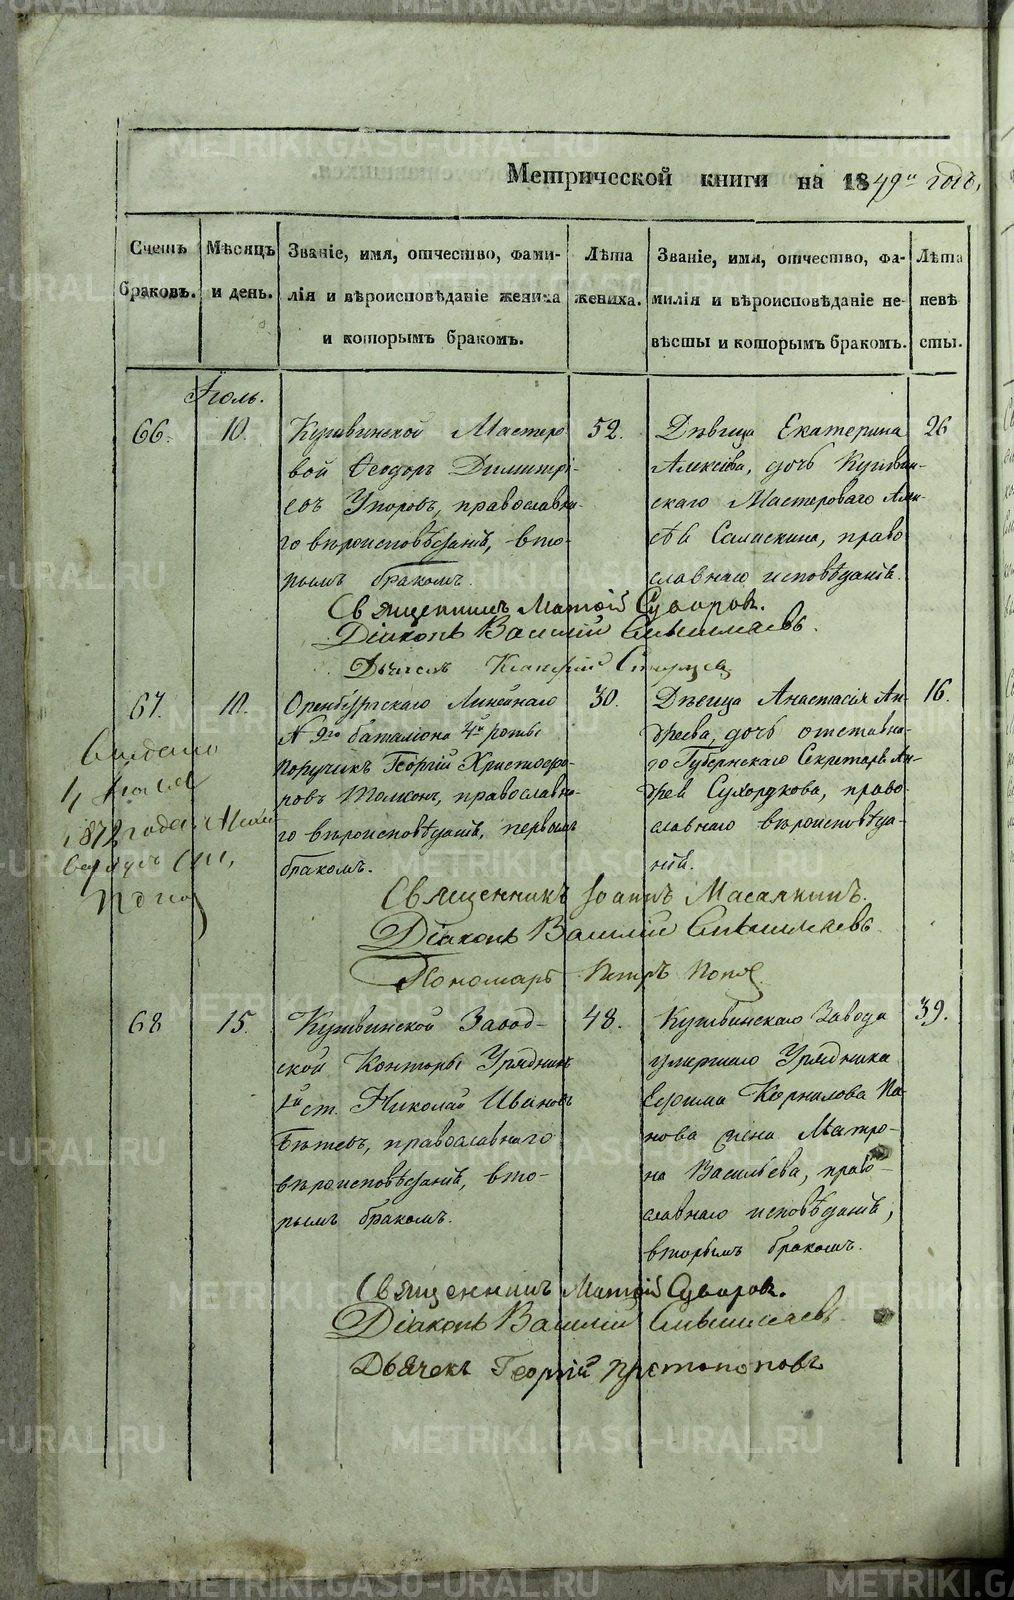 METRIKI.GASO-URAL.RU
Метрической книги на 1849й годъ,
Счетъ браковъ.
Мѣсяцъ и день.
Званіе, имя, отчество, фами-
лія и вѣроисповѣданіе жениха
и которымъ бракомъ.
Лѣта жениха.
Званіе, имя, отчество, фа-
милія и вѣроисповѣданіе не-
вѣсты и которымъ бракомъ.
Лѣта невѣ сты.
Іюль.
66.
10.
Кушвинской Мастеро
вой Ѳеодоръ Димитрі-
евъ Упоровъ, православна-
го вѣроисповѣданія, вто-
рымъ бракомъ.
52.
Дѣвица Екатерина
Алексѣева, дочь Кушвин-
скаго Мастероваго Алек-
сѣя, право
славнаго исповѣданія.
26
Священникъ Матѳій Суворовъ.
Діаконъ Василій
Дьячекъ
67.
10.
Оренбургскаго Линейнаго
№ 9го баталіона 4й роты
Поручикъ Георгій Христофо-
ровъ, православна-
го вѣроисповѣданія, первымъ
бракомъ.
30.
Дѣвица Анастасія Ан-
дреева, дочь отставна-
го Губернскаго Секретаря Ан-
дрея Сухорукова, право-
славнаго вѣроисповѣда-
нія.
16.
1872 года
Священникъ Іоаннъ Масалкинъ.
Діаконъ Василій
Пономарь Петръ Поповъ
68
15.
Кушвинской Завод-
ской Конторы Урядникъ
1й ст. Николай Ивановъ
православнаго
вѣроисповѣданія, вто-
рымъ бракомъ.
48.
Кушвинскаго Завода
умершаго Урядника
Ефима Корнилова Па-
нова жена Матро-
на Васильева, право-
славнаго исповѣданія,
вторымъ бракомъ.
39.
Священникъ Матѳій Суворовъ.
Діаконъ Василій
Дьячекъ Георгій Протопоповъ